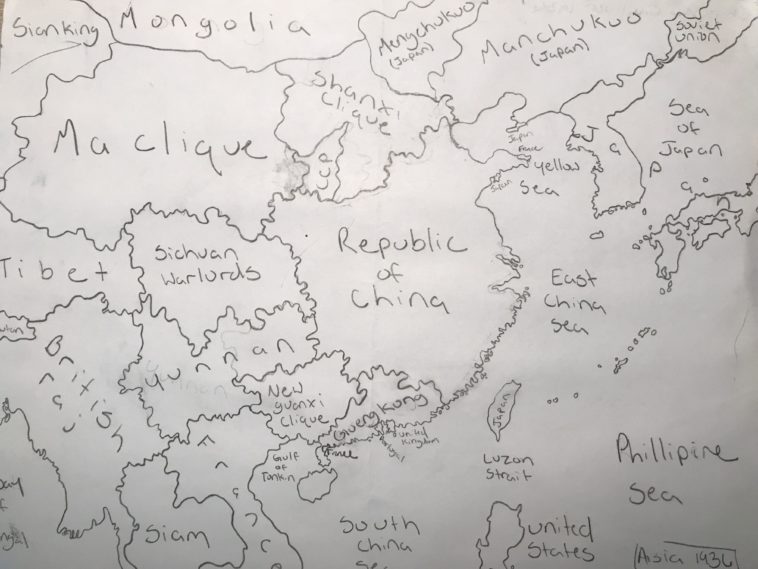 Sianking
Mongolia
Mengchukuo
(Japan)
Manchukuo
(Japan)
Soviet
Union
Shanxi
Clique
Ma Clique
Sea
of
Japan
Japan
France
Yellow
Sea
Japan
Japa
Tibet
Sichuan
Warlords
Republic
of
China
East
China
Sea
Yunnan
British
New
guanxi
Clique
Guengkong
United
Kingdom
France
Gulf
of
Tonkin
Japan
Luzon
Strait
Phillipine
Sea
Siam
South
China
Sea
United
States
Asia 1936